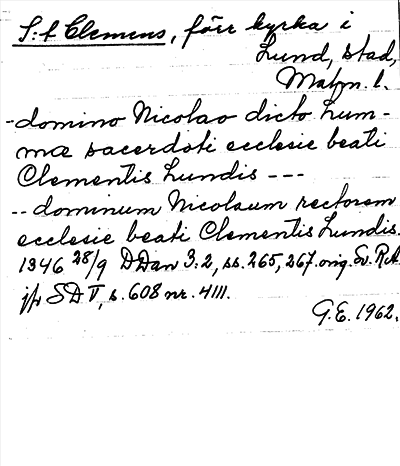 S:t Clemens, förr kyrka i
Lund, stad,
Malm. l.
- domino Nicolao dicto Lum-
mæ sacerdoti ecclesie beati
Clementis Lundis ---
-- dominum Nicolaum rectorem
ecclesie beati Clementis Lundis.
1346 28/9 DDan 3:2, ss. 265, 267. orig. Sv. RA
jfr SD V, s. 608 nr. 4111.
G.E. 1962.